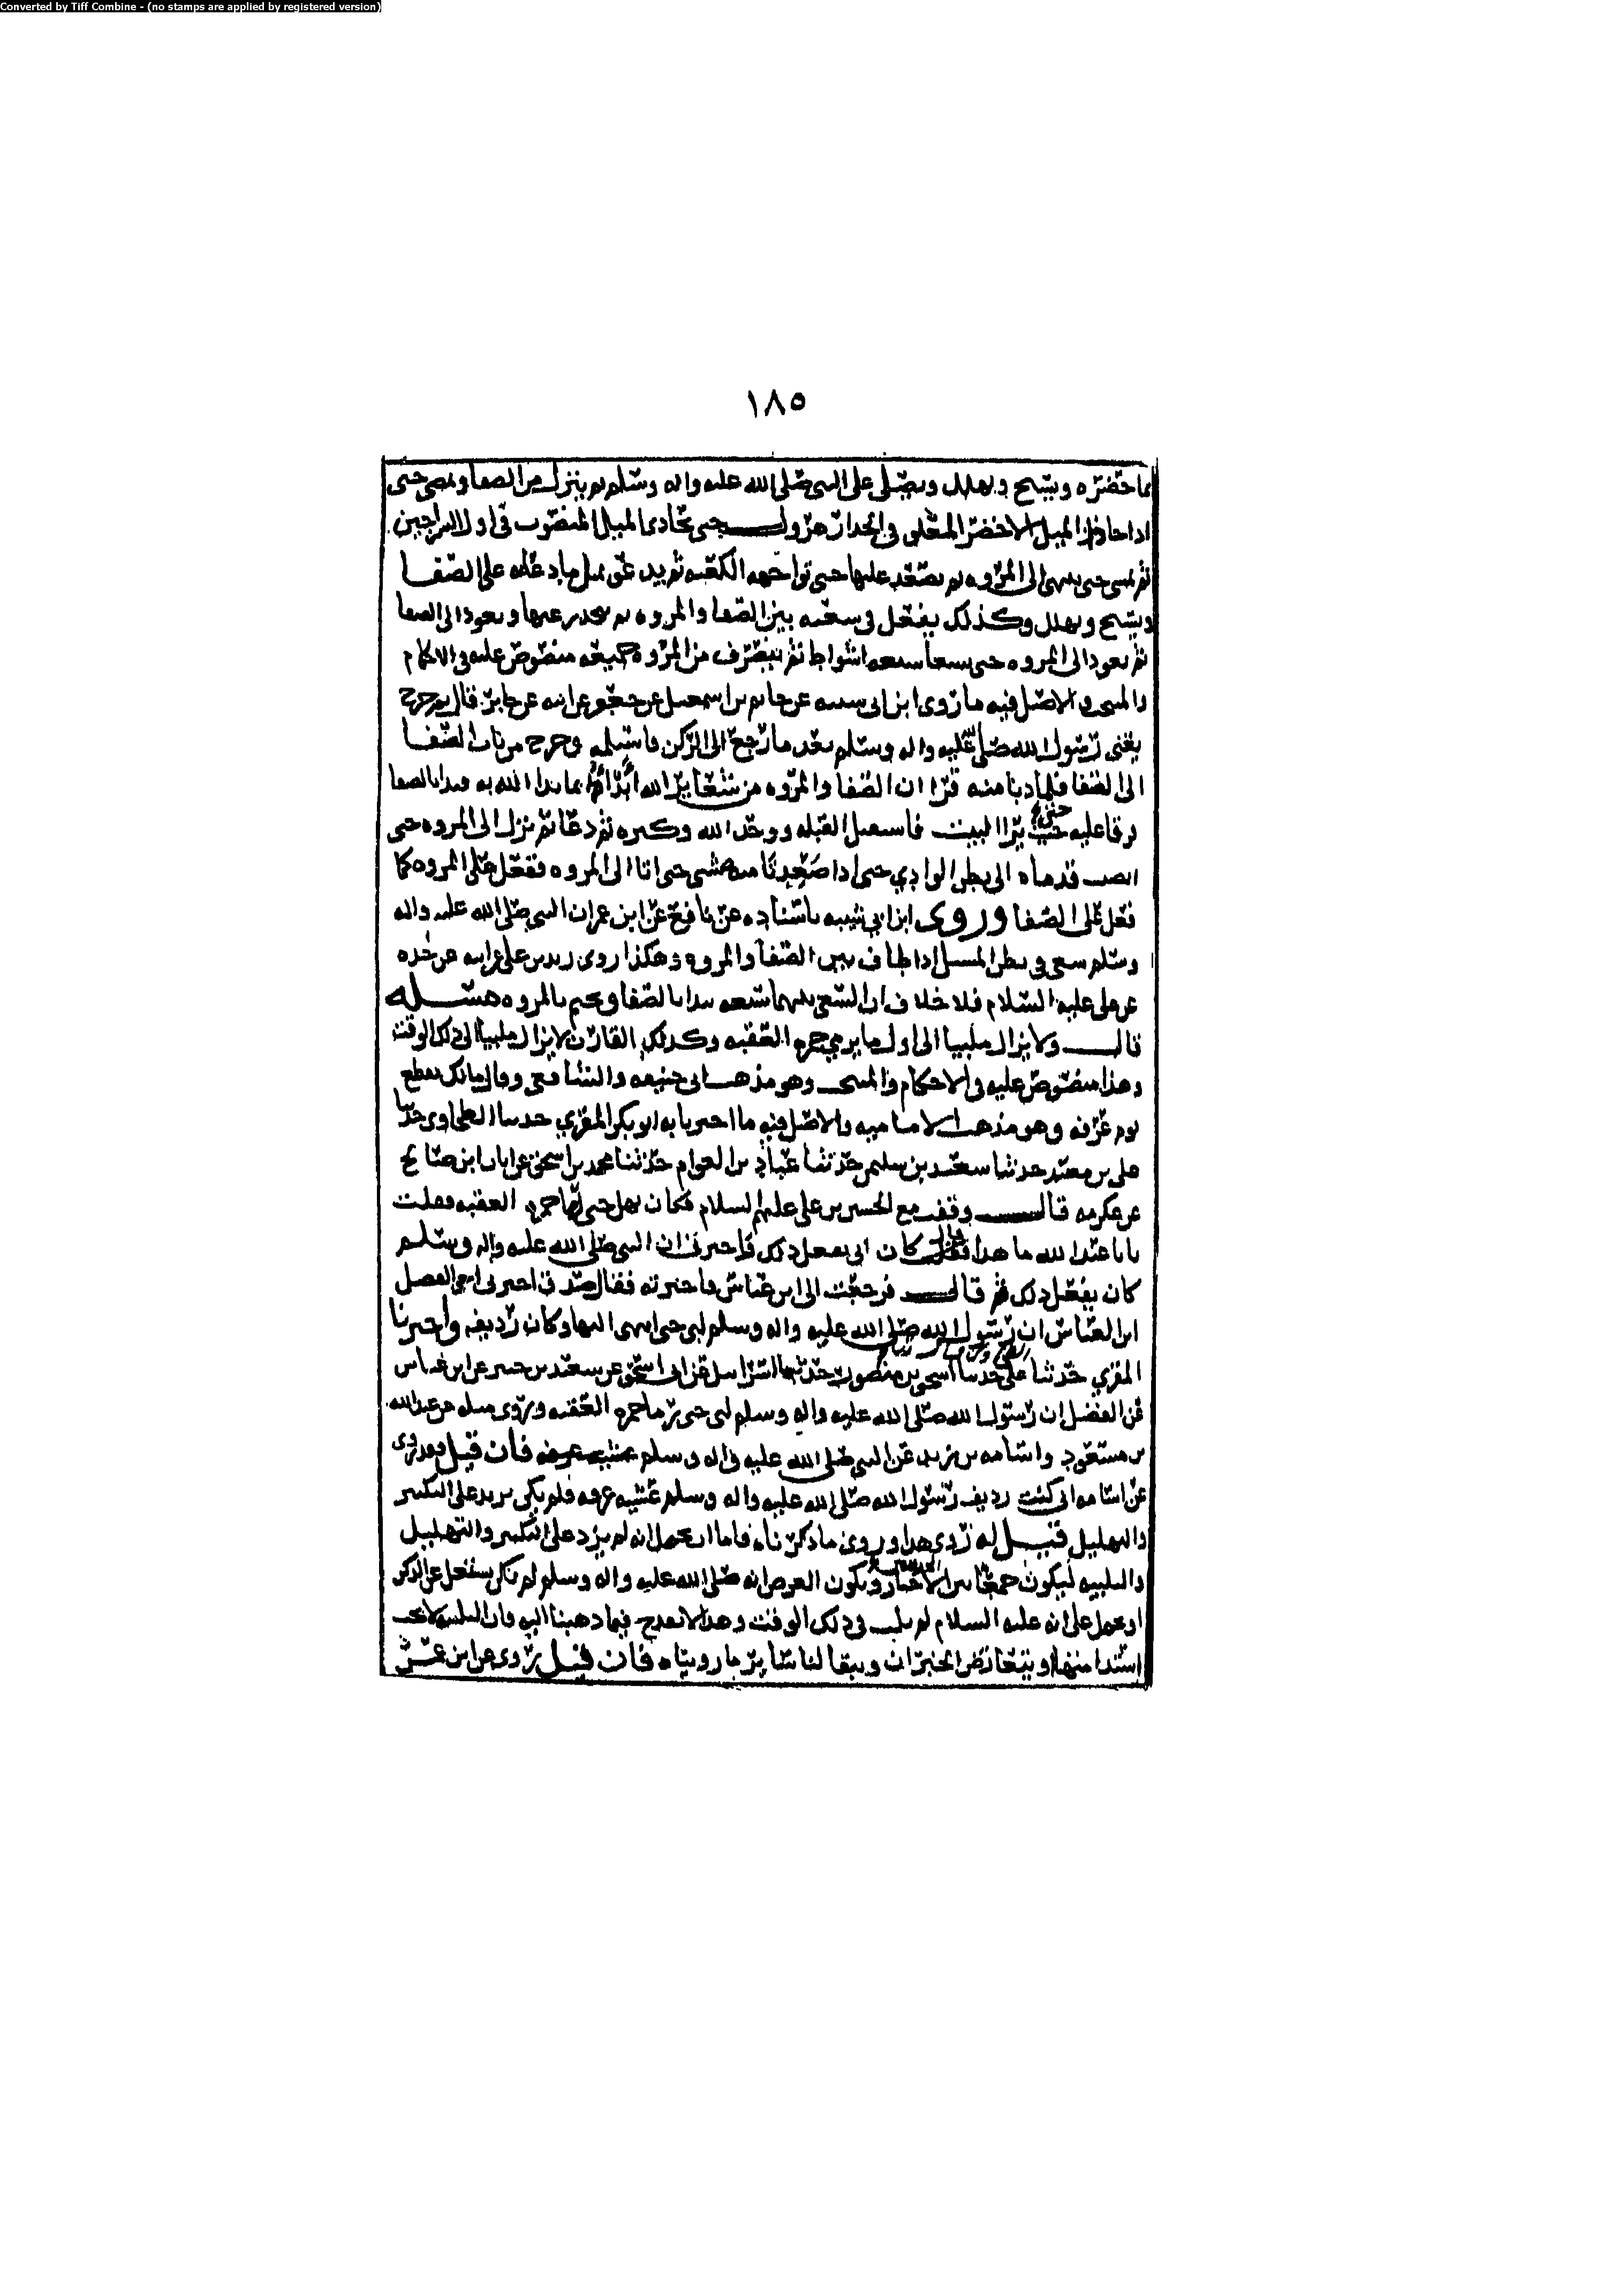 Converted by Tiff Combine - (no stamps are applied by registered version)
١٨٥
بما حضره ويسبح ويهلل ويصلي على النبي صلى الله عليه واله وسلم ثم ينزل من الصفا ويمضي حتى
اذا حاذى الميل الاخضر المعلق في الجدار هرول حتى يحاذي الميل المنصوب في اول السراجين
ثم يمشي حتى ينتهي الى المروه ثم يصعد عليها حتى تواجهه الكعبه ثم يدعو بمثل ما دعا به على الصفا
ويسبح ويهلل وكذلك يفعل في سعيه بين الصفا والمروه ثم ينحدر عنها ويعود الى الصفا
ثم يعود الى المروه حتى يسعا سبعه اشواط ثم ينصرف من المروه جميعه منصوص عليه في الاحكام
والمنتخب والاصل فيه ما روى ابن ابي شيبه عن حاتم بن اسمعيل عن جعفر عن ابيه عن جابر قال ثم خرج
يعني رسول الله صلى الله عليه واله وسلم بعد ما رجع الى الركن فاستلمه وخرج من باب الصفا
الى الصفا فلما دنا منه قرا ان الصفا والمروه من شعاير الله ابدا بما بدا الله به فبدا بالصفا
فرقا عليه حتى يرا البيت فاستقبل القبله ووحد الله وكبره ثم دعا ثم نزل الى المروه حتى
انصبت قدماه الى بطن الوادي حتى اذا صعدنا مشى حتى اتا الى المروه ففعل على المروه كما
فعل على الصفا وروى ابن ابي شيبه باسناده عن نافع عن ابن عمر ان النبي صلى الله عليه واله
وسلم سعى في بطن المسيل اذا طاف بين الصفا والمروه وهكذا روى زيد بن علي عن ابيه عن جده
عن علي عليه السلام فلا خلاف ان السعي بينهما سبعه يبدا بالصفا ويختم بالمروه مسله
قال ولا يزال ملبيا الى اول ما يرمي جمره العقبه وكذلك القارن لا يزال ملبيا الى ذلك الوقت
وهذا منصوص عليه في الاحكام والمنتخب وهو مذهب ابي حنيفه والشافعي وقال مالك يقطع
يوم عرفه وهو مذهب الاماميه والاصل فيه ما اخبرنا به ابو بكر المقري حدثنا الطحاوي حدثنا
علي بن معبد حدثنا سعيد بن سليمن حدثنا عباد بن العوام حدثنا محمد بن اسحق عن ابان ابن صالح
عن عكرمه قال وقفت مع الحسين بن علي عليهم السلام فكان يهل حتى رما جمره العقبه فقلت
يا با عبد الله ما هذا فقال كان ابي يفعل ذلك واخبرني ان النبي صلى الله عليه واله وسلم
كان يفعل ذلك ثم قال فرجعت الى ابن عباس فاخبرته فقال صدق اخبرني اخي الفضل
ابن العباس ان رسول الله صلى الله عليه واله وسلم لبى حتى انتهى اليها وكان رديفه واخبرنا
المقري حدثنا علي حدثنا اسحق بن منصور حدثنا اسرائيل عن ابي اسحق عن سعيد بن جبير عن ابن عباس
عن الفضل ان رسول الله صلى الله عليه واله وسلم لبى حتى رما جمره العقبه وروى مثله عن عبد الله
بن مسعود واسامه بن زيد عن النبي صلى الله عليه واله وسلم عشيه عرفه فان قيل فقد روى
عن اسامه اني كنت رديف رسول الله صلى الله عليه واله وسلم عشيه عرفه فلم يكن يزيد على التكبير
والتهليل قيل له روى هذا وروى ما ذكرناه فاما ان يحمل انه لم يزد على التكبير والتهليل
والتلبيه ليكون جمعا بين الاخبار ويكون الغرض انه صلى الله عليه واله وسلم لم يكن يشتغل عن الذكر
او يحمل على انه عليه السلام لم يلب في ذلك الوقت وهذا لا يقدح فيما ذهبنا اليه فان التلبيه لا يجب
استدامتها او يتعارض الخبران ويبقا لنا ساير ما رويناه فان قيل روى عن ابن عمر